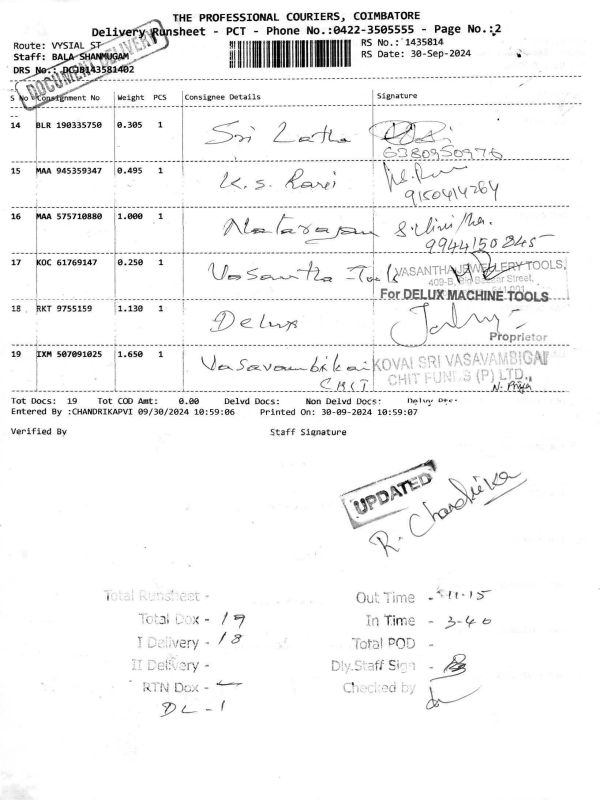 THE PROFESSIONAL COURIERS, COIMBATORE
Delivery Runsheet - PCT - Phone No.:0422-3505555 - Page No.:2
Route: VYSIAL ST
RS No.: 1435814
Staff: BALA SHANMUGAM
RS Date: 30-Sep-2024
DRS No.: DCJB143581402
DOCUMENT DELIVERY
S No Consignment No Weight PCS Consignee Details Signature
14 BLR 190335750 0.305 1 Sri Latha
6380950976
15 MAA 945359347 0.495 1 K.S. Ravi
9150414264
16 MAA 575710880 1.000 1 Natarajan
9944150245
17 KOC 61769147 0.250 1 Vasantha Tools VASANTHA JEWELLERY TOOLS,
409-B, Big Bazaar Street,
For DELUX MACHINE TOOLS
18 RKT 9755159 1.130 1 Delux
Proprietor
19 IXM 507091025 1.650 1 Vasavambikai KOVAI SRI VASAVAMBIGAI
CHIT CHIT FUNDS (P) LTD.,
N. Priya
Tot Docs: 19 Tot COD Amt: 0.00 Delvd Docs: Non Delvd Docs:
Entered By :CHANDRIKAPVI 09/30/2024 10:59:06 Printed On: 30-09-2024 10:59:07
Verified By Staff Signature
UPDATED
R. Chandrika
Total Runsheet - Out Time - 11-15
Total Dox - 19 In Time - 3-40
I Delivery - 18 Total POD -
II Delivery - Dly.Staff Sign -
RTN Dox - Checked by
DL - 1